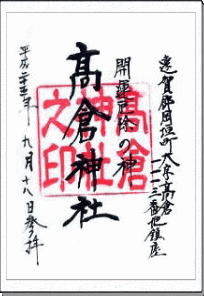 遠賀郡岡垣町大字高倉
一一一三番地鎮座
開運厄除の神
髙倉神社
髙倉
神社
之印
平成二十五年 九月十八日参拝